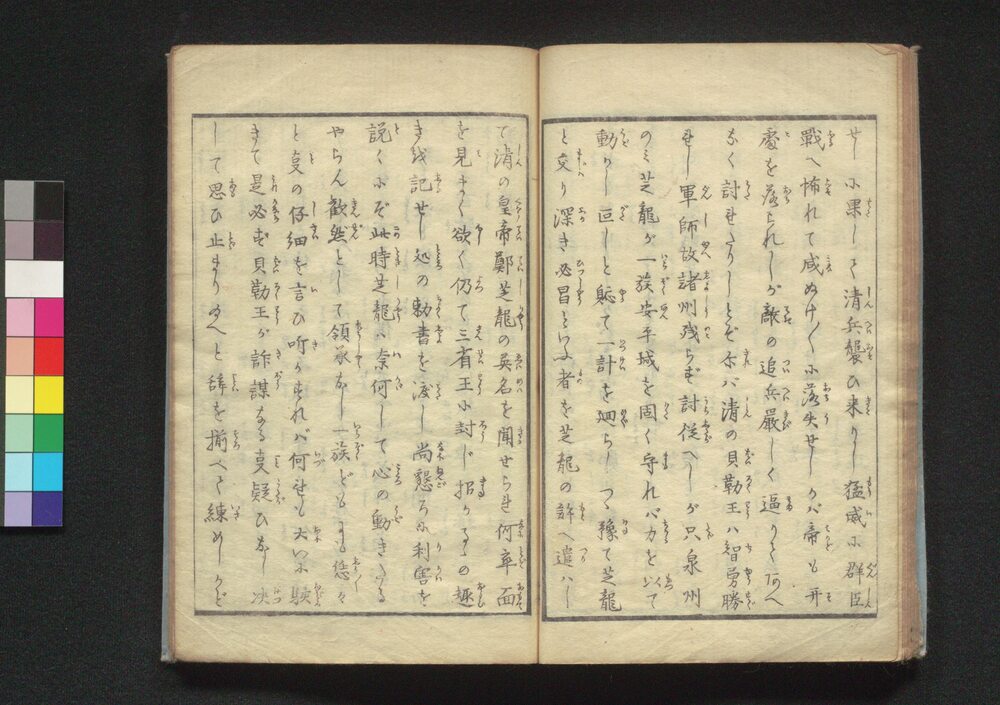 せし小果して清兵襲ひ来りし猛威に群臣
戦へ怖れて咸ぬけ〳〵に落失せしかバ帝も再
慶を落られしが敵の追兵厳しく逼りて
なく討せたりしとぞ尓バ清の貝勒王ハ智勇勝
せし軍師故諸州残らず討従へしが只泉州
のミ芝龍が一族安平城を固く守れバ力を以て
動かし叵しと軈て一計を廻らしつゝ豫て芝龍
と交り深き必昌といふ者を芝龍の許へ遣ハし
て清の皇帝鄭芝龍の英名を聞せられ何卒面
を見まく欲く仍て三省王に封じ招かるゝの趣
きを記せし処の勅書を渡し尚懇ろに利害を
説くにぞ此時芝龍ハ奈何して心の動きたる
やらん歓然として領承なし一族どもにも恁々
と叓の仔細を言ひ聞かすれバ何れも大いに駭
きて是必ず貝勒王が詐謀なる叓疑ひなし决
して思ひ止まり給へと辞を揃へて練めしかど